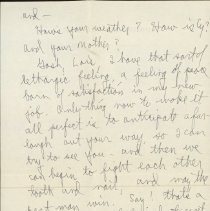 and —
How's your weather? How is Ig?
and your mother?
Gosh Lois, I have that sort of
lethargic feeling, a feeling of peace
born of satisfaction in my new
job. Only thing now to make it
all perfect is to anticipate a fur-
lough out your way so I can
try to see you - and then we
can begin to fight each other
tooth and nail and may the
best man win. Say! that's a